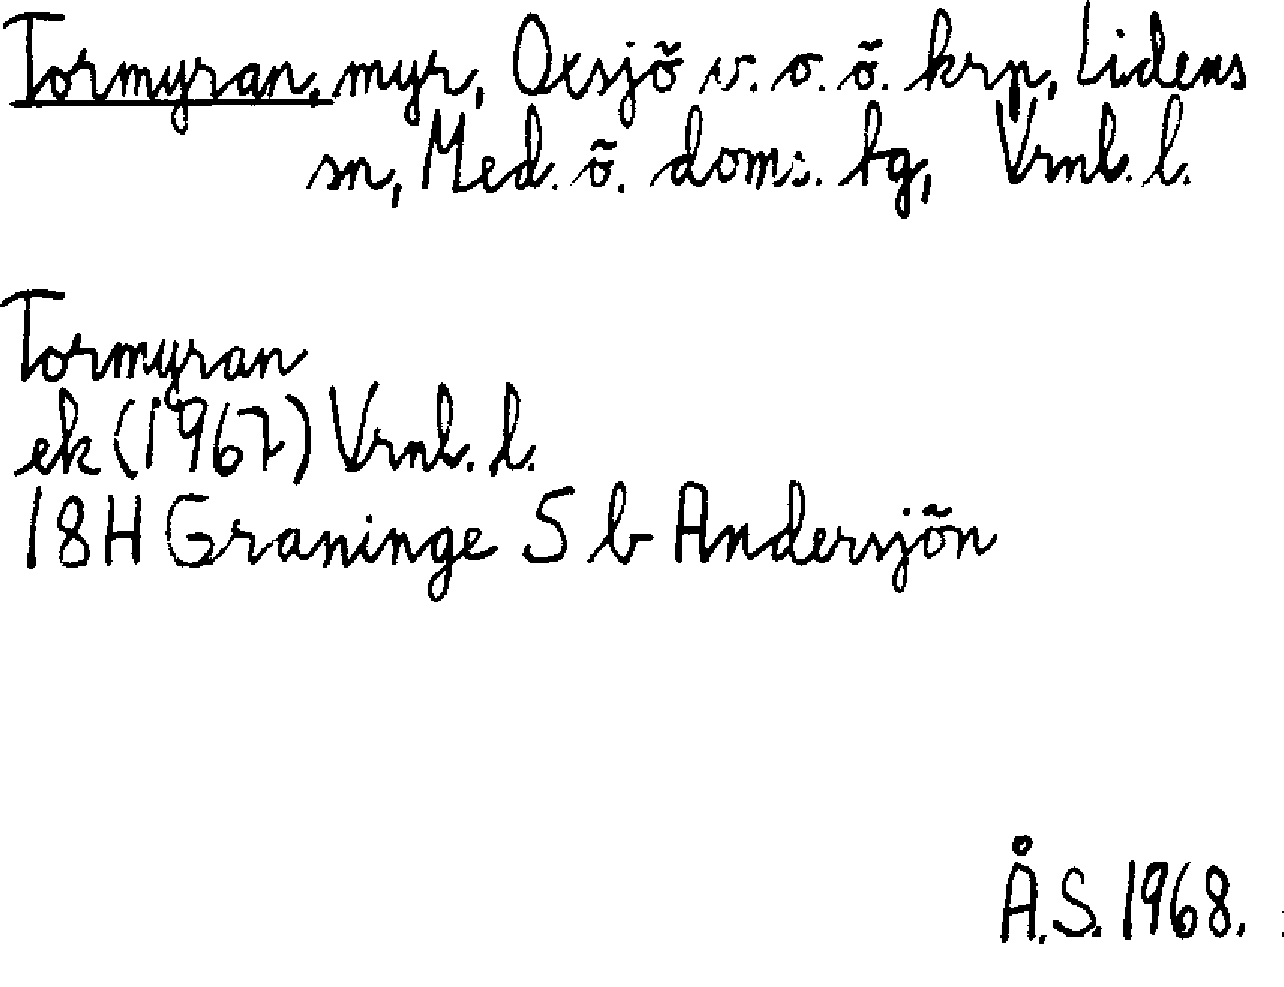 Tormyran, myr, Oxsjö v. o. ö. krp, Lidens
sn, Med. ö. doms. tg, Vrnl. l.
Tormyran
ek (1967) Vrnl. l.
18H Graninge S b Andersjön
Å.S. 1968.